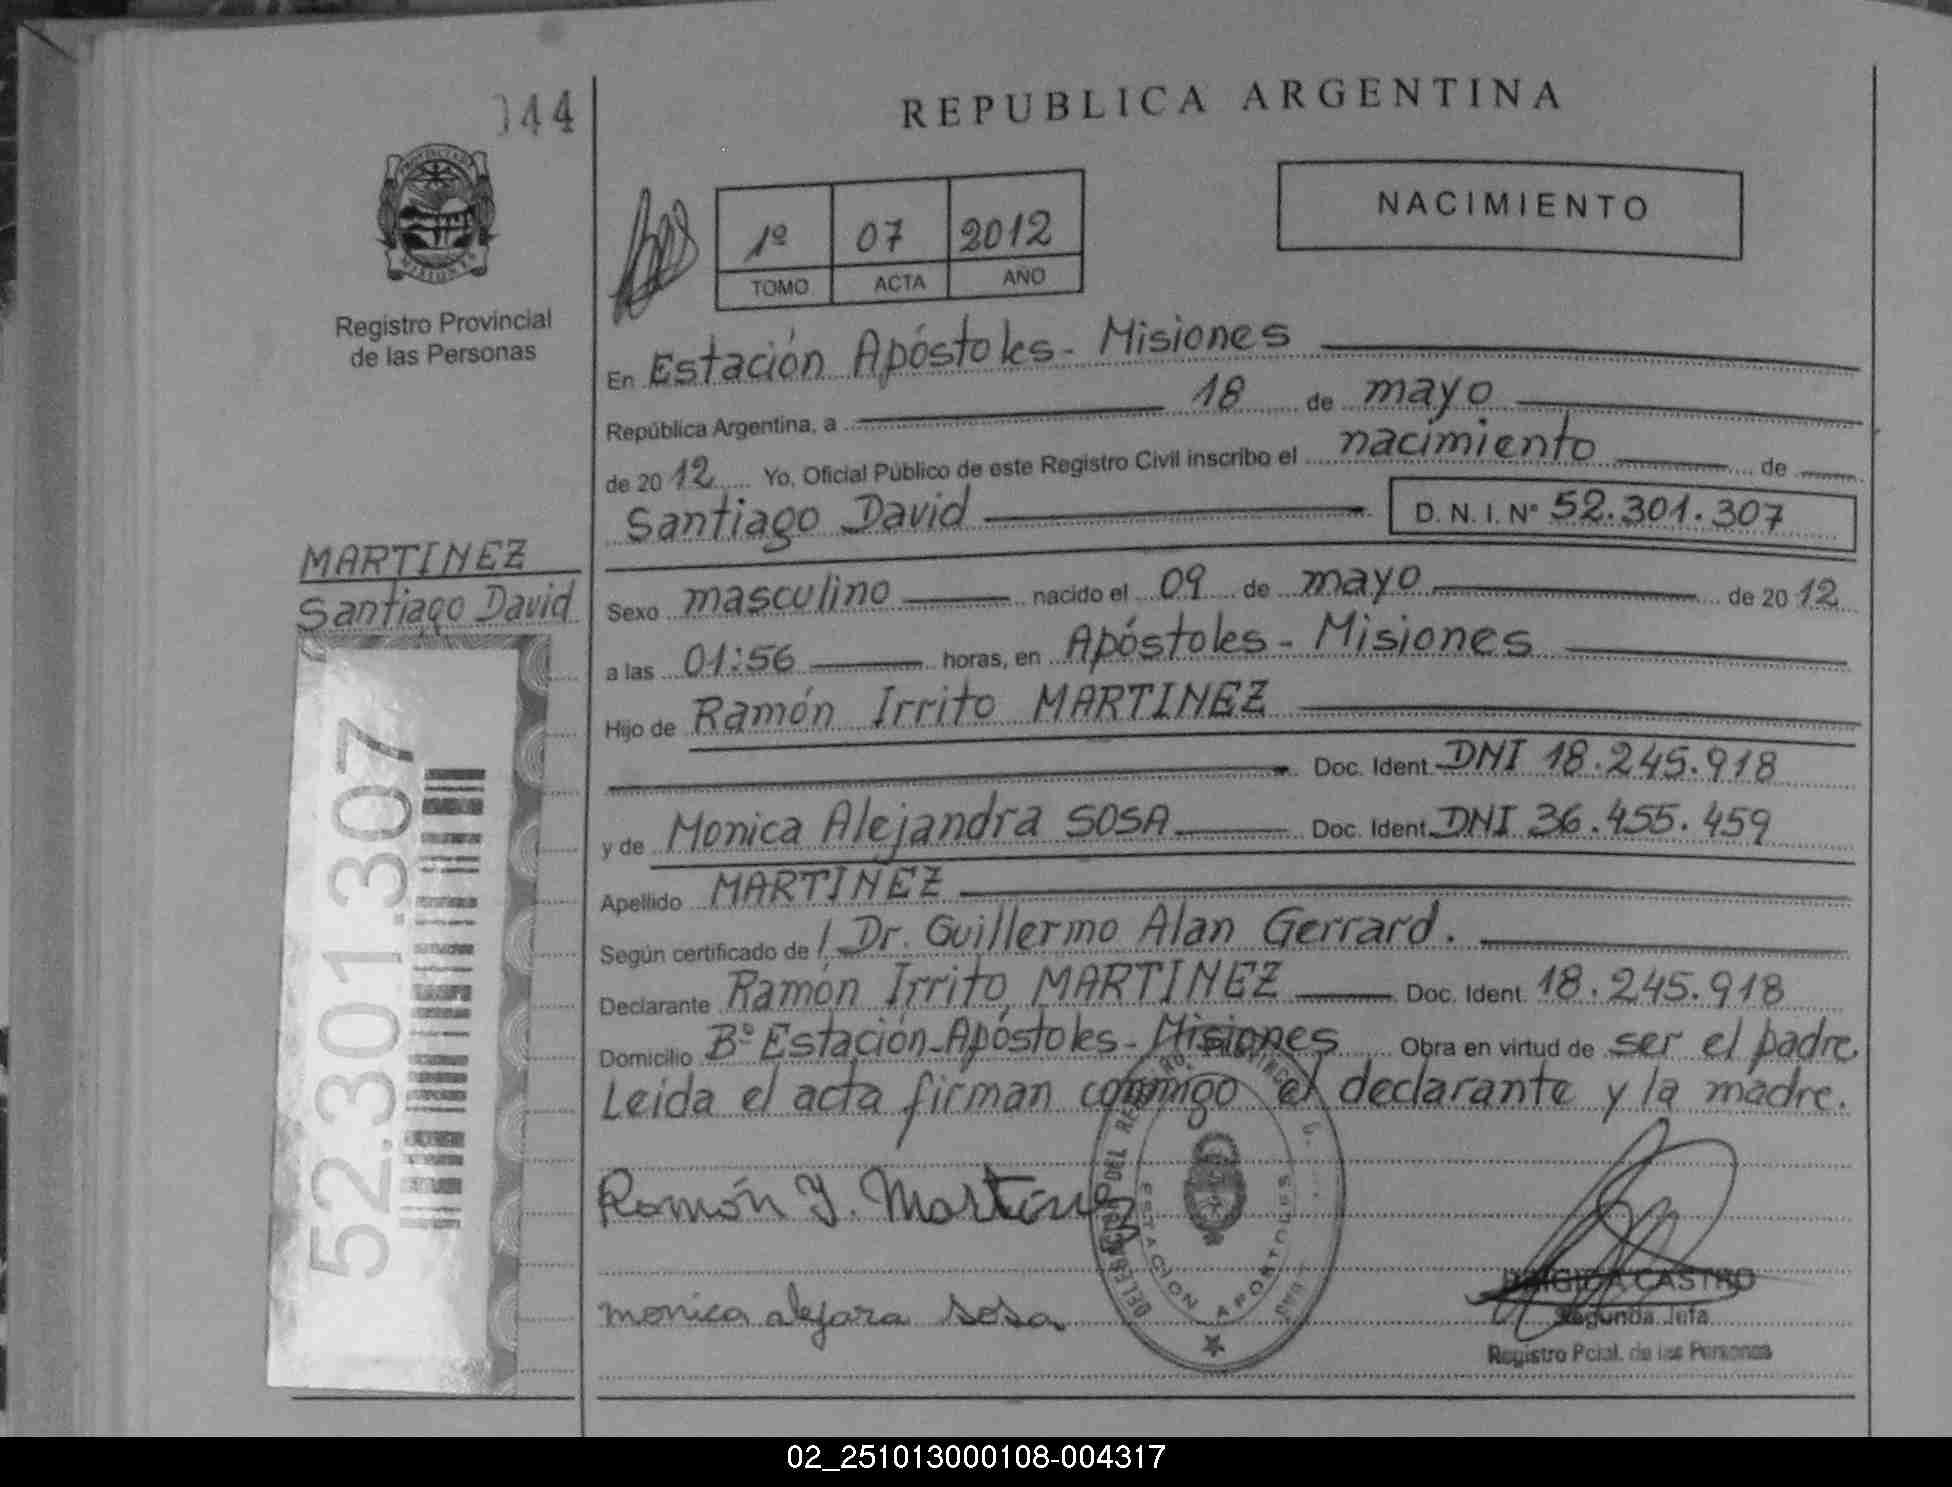 044
REPUBLICA ARGENTINA
NACIMIENTO
1º 07 2012
TOMO ACTA AÑO
PROVINCIA DE
MISIONES
Registro Provincial
de las Personas
En Estación Apóstoles - Misiones
República Argentina, a 18 de mayo
de 2012 Yo, Oficial Público de este Registro Civil inscribo el nacimiento de
Santiago David D.N.I. Nº 52.301.307
MARTINEZ
Santiago David
52.301.307
Sexo masculino nacido el 09 de mayo de 2012
a las 01:56 horas, en Apóstoles - Misiones
Hijo de Ramón Irrito MARTINEZ
Doc. Ident. DNI 18.245.918
y de Monica Alejandra SOSA Doc. Ident. DNI 36.455.459
Apellido MARTINEZ
Según certificado de / Dr. Guillermo Alan Gerrard.
Declarante Ramón Irrito MARTINEZ Doc. Ident. 18.245.918
Domicilio Bº Estación-Apóstoles-Misiones Obra en virtud de ser el padre
Leida el acta firman conmigo el declarante y la madre.
Ramón I. Martinez
monica alejara sosa
ESTACION APOSTOLES
CASTRO
Segunda Jefa
Registro Pcial. de las Personas
02_251013000108-004317